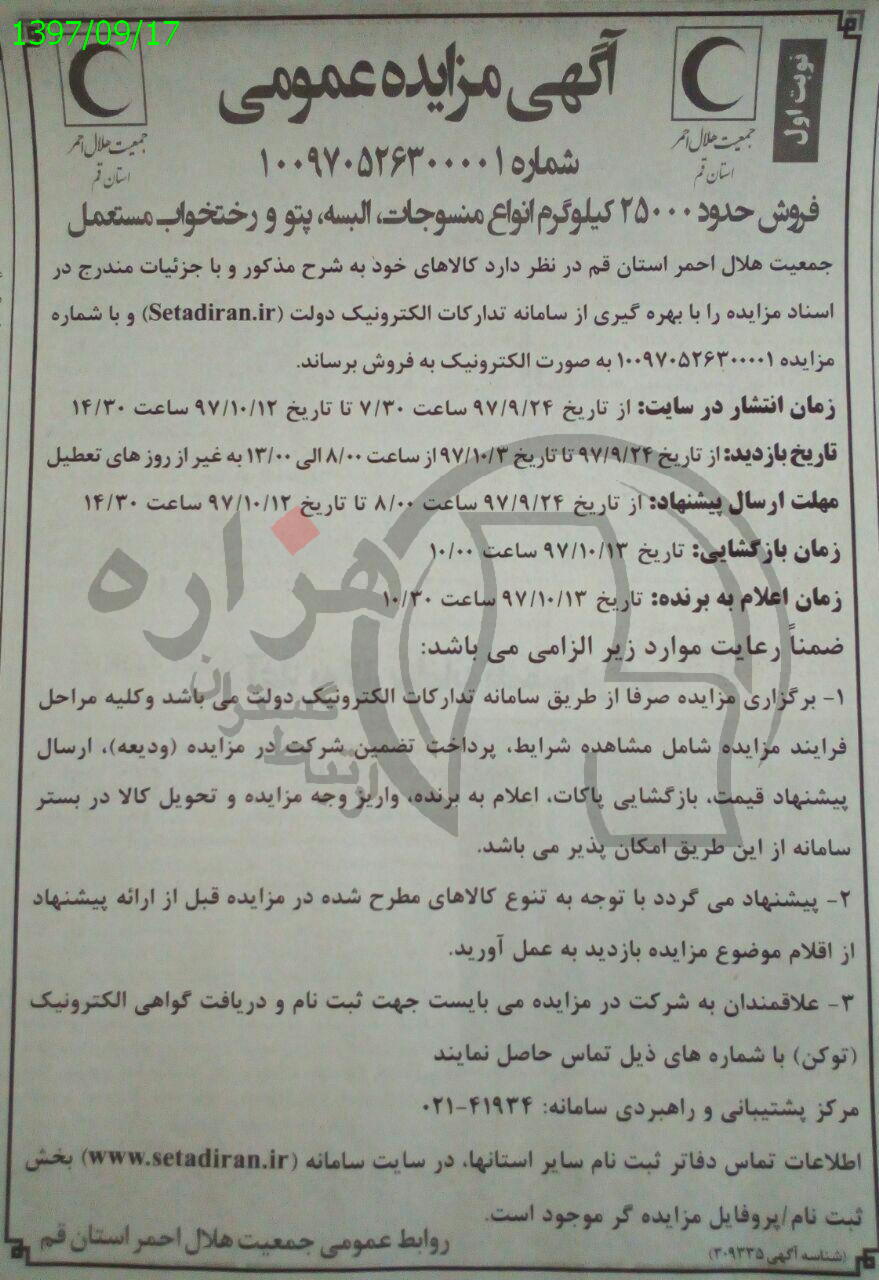 1397/09/17
نوبت اول
آگهی مزایده عمومی
جمعیت هلال احمر
استان قم
جمعیت هلال احمر
استان قم
شماره ۱۰۰۹۷۰۵۲۶۳۰۰۰۰۱
فروش حدود ۲۵۰۰۰ کیلوگرم انواع منسوجات، البسه، پتو و رختخواب مستعمل
جمعیت هلال احمر استان قم در نظر دارد کالاهای خود به شرح مذکور و با جزئیات مندرج در
اسناد مزایده را با بهره گیری از سامانه تدارکات الکترونیک دولت (Setadiran.ir) و با شماره
مزایده ۱۰۰۹۷۰۵۲۶۳۰۰۰۰۱ به صورت الکترونیک به فروش برساند.
زمان انتشار در سایت: از تاریخ ۹۷/۹/۲۴ ساعت ۷/۳۰ تا تاریخ ۹۷/۱۰/۱۲ ساعت ۱۴/۳۰
تاریخ بازدید: از تاریخ ۹۷/۹/۲۴ تا تاریخ ۹۷/۱۰/۳ از ساعت ۸/۰۰ الی ۱۳/۰۰ به غیر از روز های تعطیل
مهلت ارسال پیشنهاد: از تاریخ ۹۷/۹/۲۴ ساعت ۸/۰۰ تا تاریخ ۹۷/۱۰/۱۲ ساعت ۱۴/۳۰
زمان بازگشایی: تاریخ ۹۷/۱۰/۱۳ ساعت ۱۰/۰۰
زمان اعلام به برنده: تاریخ ۹۷/۱۰/۱۳ ساعت ۱۰/۳۰
هزاره
ارتباط گستران
ضمناً رعایت موارد زیر الزامی می باشد:
۱- برگزاری مزایده صرفا از طریق سامانه تدارکات الکترونیک دولت می باشد وکلیه مراحل
فرایند مزایده شامل مشاهده شرایط، پرداخت تضمین شرکت در مزایده (ودیعه)، ارسال
پیشنهاد قیمت، بازگشایی پاکات، اعلام به برنده، واریز وجه مزایده و تحویل کالا در بستر
سامانه از این طریق امکان پذیر می باشد.
۲- پیشنهاد می گردد با توجه به تنوع کالاهای مطرح شده در مزایده قبل از ارائه پیشنهاد
از اقلام موضوع مزایده بازدید به عمل آورید.
۳- علاقمندان به شرکت در مزایده می بایست جهت ثبت نام و دریافت گواهی الکترونیک
(توکن) با شماره های ذیل تماس حاصل نمایند
مرکز پشتیبانی و راهبردی سامانه: ۴۱۹۳۴-۰۲۱
اطلاعات تماس دفاتر ثبت نام سایر استانها، در سایت سامانه (www.setadiran.ir) بخش
ثبت نام/پروفایل مزایده گر موجود است.
(شناسه آگهی ۳۰۹۳۳۵)
روابط عمومی جمعیت هلال احمر استان قم